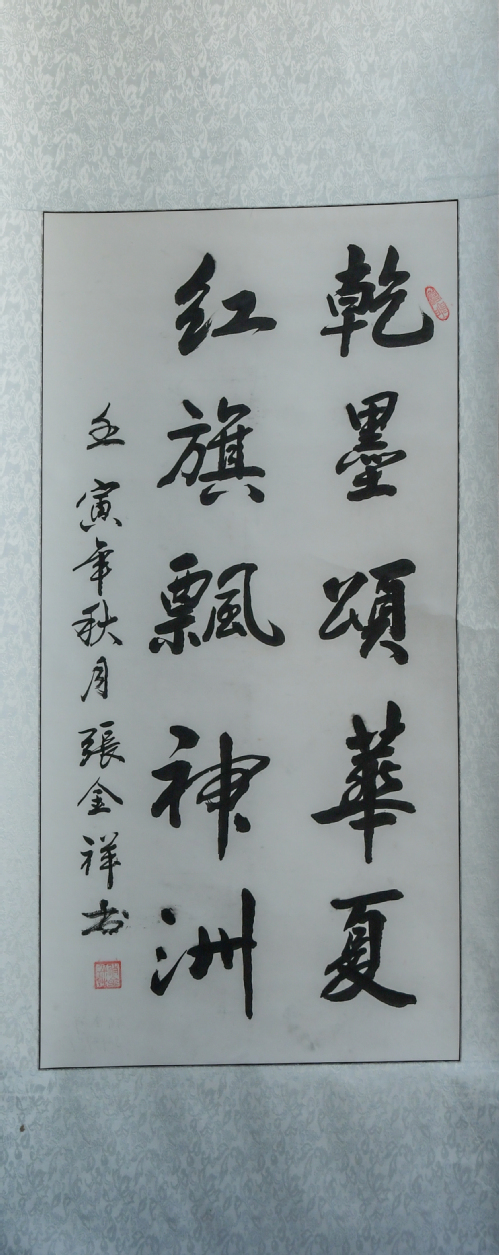 乾墨頌華夏
红旗飄神洲
壬寅年秋月張金祥书